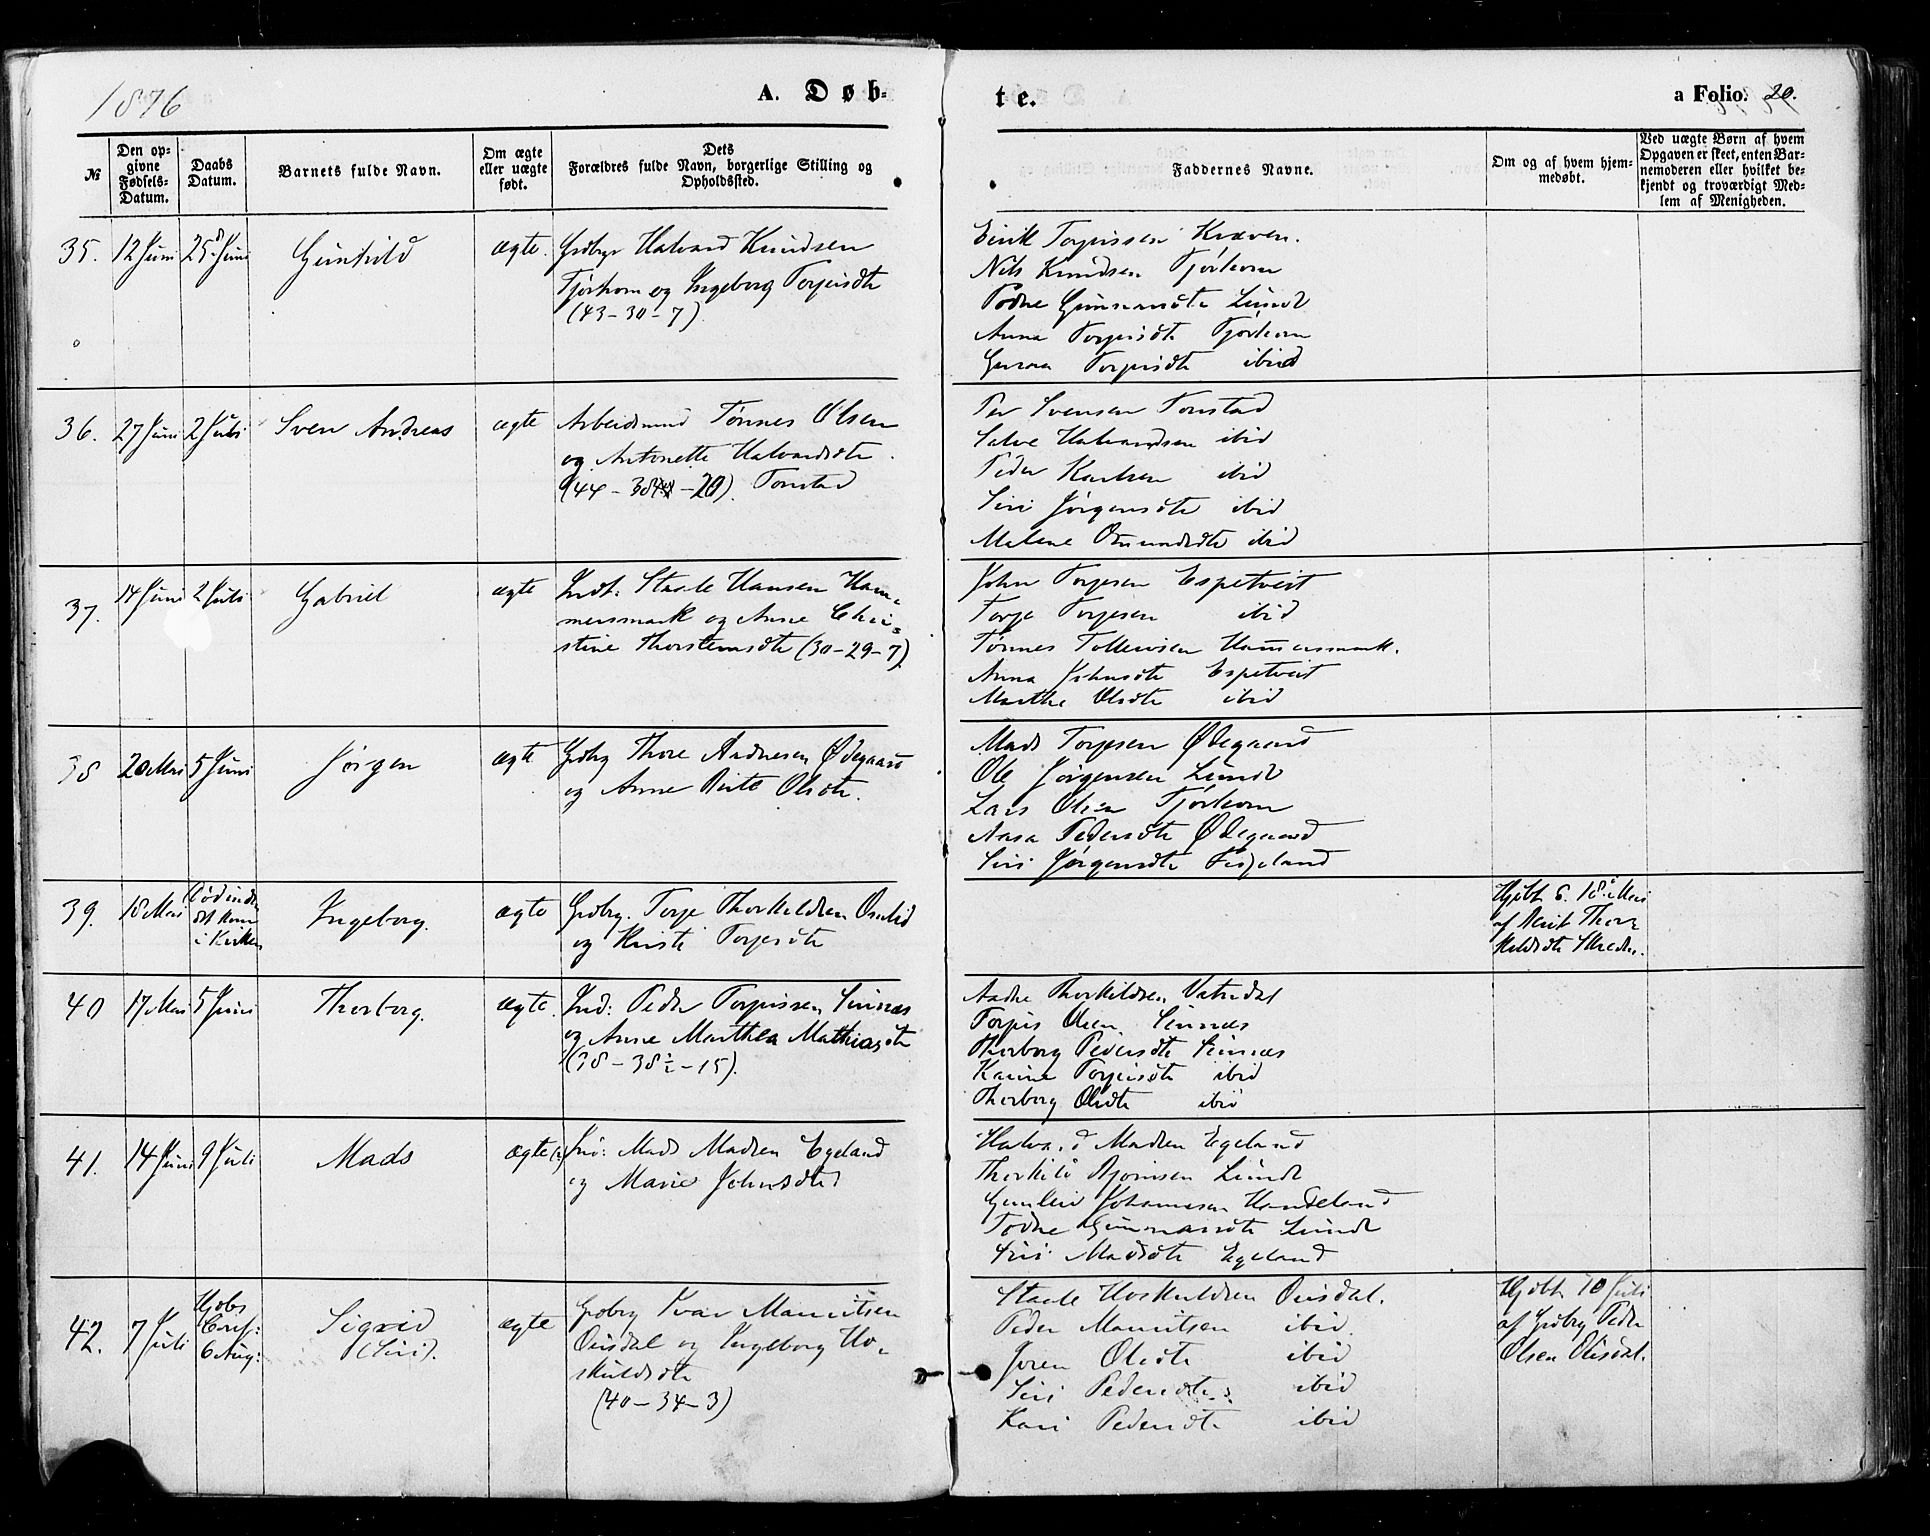 1876
A. Døb-
te.
a Folio. 20.
№
Den op-
givne
Fødsels-
Datum.
Daabs
Datum.
Barnets fulde Navn.
Om ægte
eller uægte
født.
Dets
Forældres fulde Navn, borgerlige Stilling og
Opholdssted.
Faddernes Navne.
Om og af hvem hjem-
medøbt.
Ved uægte Børn af hvem
Opgaven er skeet, enten Bar-
nemoderen eller hvilket be-
kjendt og troværdigt Med-
lem af Menigheden.
35.
12 Juni
25 Juni
Gunhild
ægte.
Grdbgr Halvard Knudsen
Tjørhom og Ingeborg Torjusdtr
(43-30-7)
Eirik Torjussen Kvæven.
Nils Knudsen Tjørhom
Todne Gunnarsdtr Lunde
Anna Torjusdtr Tjørhom
Gunna Torjusdtr ibid
36.
27 Juni
2 Juli
Sven Andreas
ægte
Arbeidsmand Tønnes Olsen
og Antonette Halvardsdtr
(44-38-20). Tonstad
Per Svensen Tonstad
Salve Halvardsen ibid
Peder Karlsen ibid
Siri Jørgensdtr ibid
Melene Omundsdtr ibid
37.
14 Juni
2 Juli
Gabriel
ægte
Indt: Staale Hansen Ham-
mersmark og Anne Chri-
stine Thorsteinsdtr (30-29-7)
John Torjesen Espetveit
Torje Torjesen ibid
Tønnes Tollevsen Hammersmark.
Anna Johnsdtr Espetveit
Marthe Olsdtr ibid
38
20 Mai
5 Juni
Jørgen
ægte
Grdbg Thore Andresen Ødegaard
og Anne Berte Olsdtr.
Mads Torjesen Ødegaard
Ole Jørgensen Lunde
Lars Olsen Tjørhom
Aasa Pedersdtr Ødegaard
Siri Jørgensdtr Fidjeland
39.
18 Mai
Død inden
det kom
i Kirken
Ingeborg.
ægte
Grdbrg. Torje Thorkildsen Osulid
og Kristi Torjesdtr
Hjdbt d. 18 Mai
af Berit Thor-
kildsdtr Skreden.
40
17 Mai
5 Juni
Thorborg.
ægte.
Ind: Peder Torjussen Sinnæs
og Anne Marthea Mathiasdtr
(38-38½-15).
Aadne Thorkildsen Vatndal
Torjus Olsen Sinnæs
Thorborg Pedersdtr Sinnæs
Karine Torjusdtr ibid
Thorborg Olsdtr ibid
41.
14 Juni
9 Juli
Mads
ægte
Ind: Mads Madsen Egeland
og Marie Johnsdtr
Halvard Madsen Egeland
Thorkild Bjørnsen Lunde
Gunleiv Johannesen Handeland
Todne Gunnarsdtr Lunde
Siri Madsdtr Egeland
42.
7 Juli
Hjdbs
Conf:
6 Aug:
Sigrid
(Siri).
ægte
Grdbrg Ivar Mauritsen
Ousdal og Ingeborg Ho-
skuldsdtr
(40-34-3)
Staale Hoskuldsen Ousdal.
Peder Mauritsen ibid.
Joren Olsdtr ibid
Siri Pedersdtr ibid
Kari Pedersdtr ibid
Hjdbt 10 Juli
af Grdbrg Peder
Olsen Ousdal.